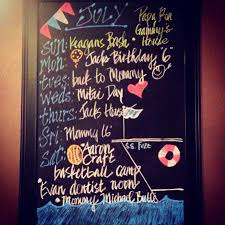 JULY
Papa Pin
Grammy's
House
Sun: Keagans Bash
Mon: Jacks Birthday 6
tues: back to Mommy
Weds: Mitai Day
thurs: Jacks House
Fri: Mommy 16
S.S. Fuzz
Sat: Aaron
Craft
basketball camp
Evan dentist noon
Mommy Michael Bublé